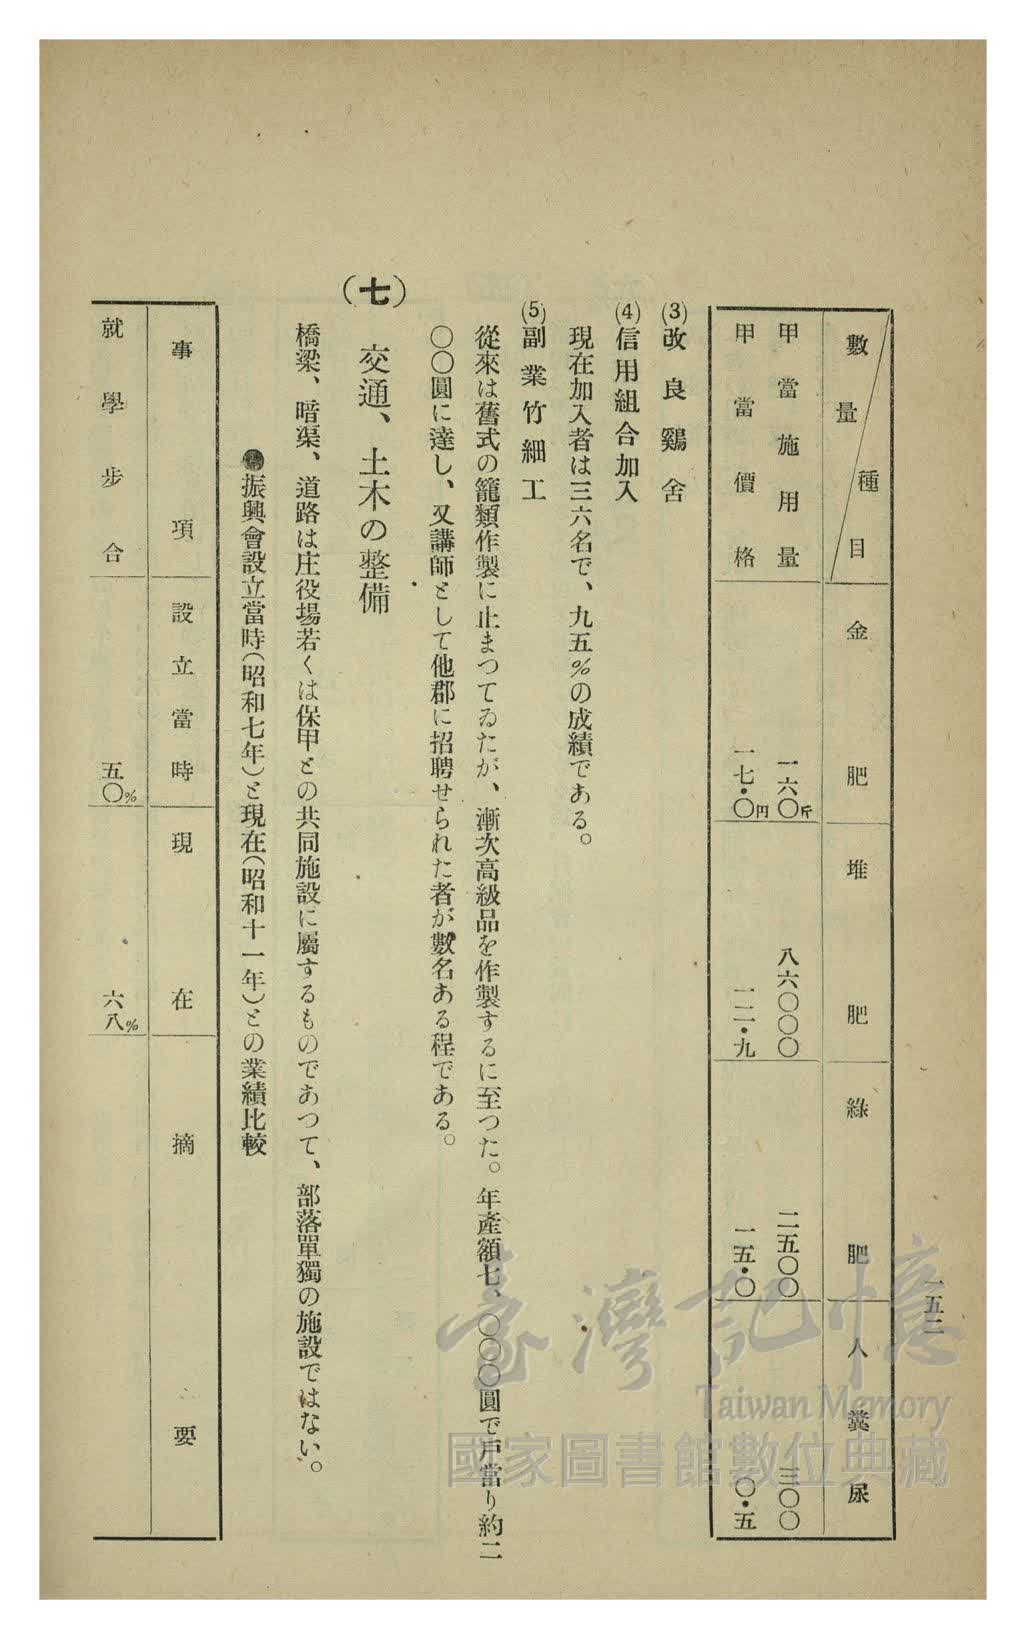 一五二
數量 種目 金肥 堆肥 綠肥 人糞尿
甲當施用量 一六〇斤 八六〇〇〇 二五〇〇 三〇〇
甲當價格 一七・〇円 一二・九 一五・〇 〇・五
(3) 改良鷄舍
(4) 信用組合加入
現在加入者は三六名で、九五%の成績である。
(5) 副業竹細工
從來は舊式の籠類作製に止まつてゐたが、漸次高級品を作製するに至つた。年產額七、〇〇〇圓で戶當り約二
〇〇圓に達し、又講師として他郡に招聘せられた者が數名ある程である。
(七) 交通、土木の整備
橋梁、暗渠、道路は庄役場若くは保甲との共同施設に屬するものであつて、部落單獨の施設ではない。
●振興會設立當時(昭和七年)と現在(昭和十一年)との業績比較
事項 設立當時 現在 摘要
就學步合 五〇% 六八%
臺灣記憶
Taiwan Memory
國家圖書館數位典藏